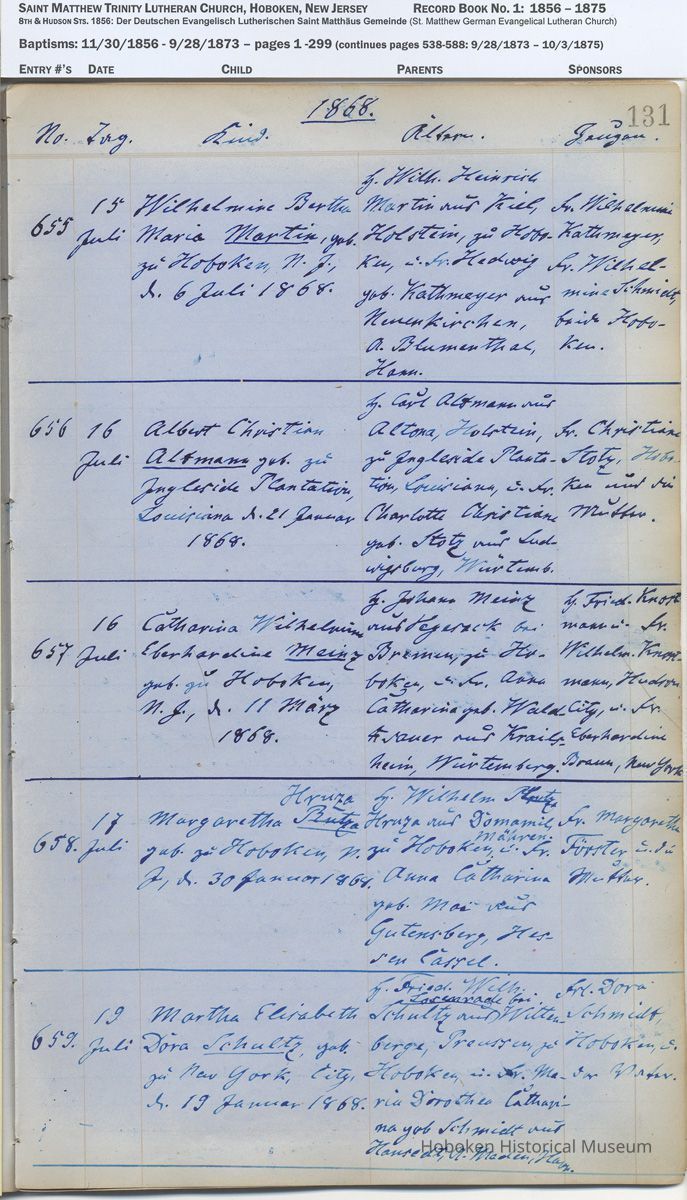 SAINT MATTHEW TRINITY LUTHERAN CHURCH, HOBOKEN, NEW JERSEY RECORD BOOK NO. 1: 1856 – 1875
8TH & HUDSON STS. 1856: Der Deutschen Evangelisch Lutherischen Saint Matthäus Gemeinde (St. Matthew German Evangelical Lutheran Church)
Baptisms: 11/30/1856 - 9/28/1873 – pages 1 -299 (continues pages 538-588: 9/28/1873 – 10/3/1875)
ENTRY #'S DATE CHILD PARENTS SPONSORS
1868.
131
No. Tag. Kind. Ältern. Zeugen.
655
15
Juli
Wilhelmine Bertha
Maria Martin, geb.
zu Hoboken, N. J.,
d. 6 Juli 1868.
H. Wilh. Heinrich
Martin aus Kiel,
Holstein, zu Hobo-
ken, u. Fr. Hedwig
geb. Kathmeyer aus
Neuenkirchen,
A. Blumenthal,
Hann.
Fr. Wilhelmine
Kathmeyer,
Fr. Wilhel-
mine Schmidt,
beide Hobo-
ken.
656
16
Juli
Albert Christian
Altmann geb. zu
Ingleside Plantation,
Louisiana d. 21 Januar
1868.
H. Carl Altmann aus
Altona, Holstein,
zu Ingleside Planta-
tion, Louisiana, u. Fr.
Charlotte Christiane
geb. Stotz aus Lud-
wigsburg, Würtemb.
Fr. Christiane
Stotz, Hobo-
ken und die
Mutter.
657
16
Juli
Catharina Wilhelmine
Eberhardine Meinz
geb. zu Hoboken,
N. J., d. 11 März
1868.
H. Johann Meinz
aus Vegesack bei
Bremen, zu Ho-
boken, u. Fr. Anna
Catharina geb. Wald-
aus Krails-
heim, Würtemberg.
H. Fried. Knost-
mann u. Fr.
Wilhelm. Knost-
mann, Hudson
City, u. Fr.
Eberhardine
Braun, New York
658.
17
Juli
Hruza
Margaretha
geb. zu Hoboken, N.
J., d. 30 Januar 1868.
H. Wilhelm
Hruza aus Domamil,
Mähren.
zu Hoboken, u. Fr.
Anna Catharina
geb. Moi aus
Gutensberg, Hes-
sen Cassel.
Fr. Margaretha
Förster u. die
Mutter.
659.
19
Juli
Martha Elisabeth
Dora Schultz, geb.
zu New York, City,
d. 19 Januar 1868.
H. Fried. Wilh.
bei
Schultz aus Witten-
berge, Preussen, zu
Hoboken, u. Fr. Ma-
ria Dorothea Cathari-
na geb. Schmidt aus
Hann.
Frl. Dora
Schmidt,
Hoboken, u.
der Vater.
Hoboken Historical Museum